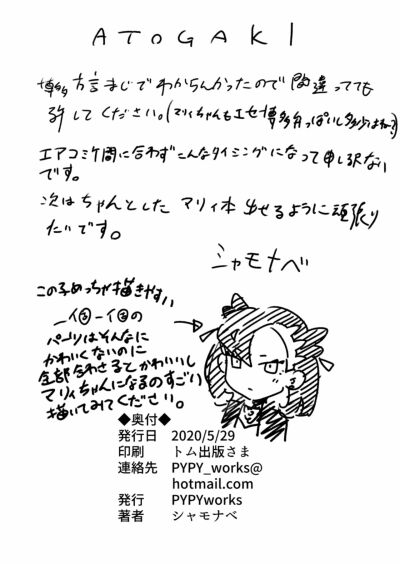 ATOGAKI
博多方言まじでわからんかったので間違ってても
許してください。(マリィちゃんもエセ博多弁っぽいし多少はね?)
エアコミケ間に合わずこんなタイミングになって申し訳ない
です。
次はちゃんとした マリィ本 出せるように頑張り
たいです。
シャモナベ
この子めっちゃ描きやすい
一個一個の
パーツはそんなに
かわいくないのに
全部合わさるとかわいいし
マリィちゃんになるのすごい
描いてみてください。
◆奥付◆
発行日 2020/5/29
印刷 トム出版さま
連絡先 PYPY_works@
hotmail.com
発行 PYPYworks
著者 シャモナベ